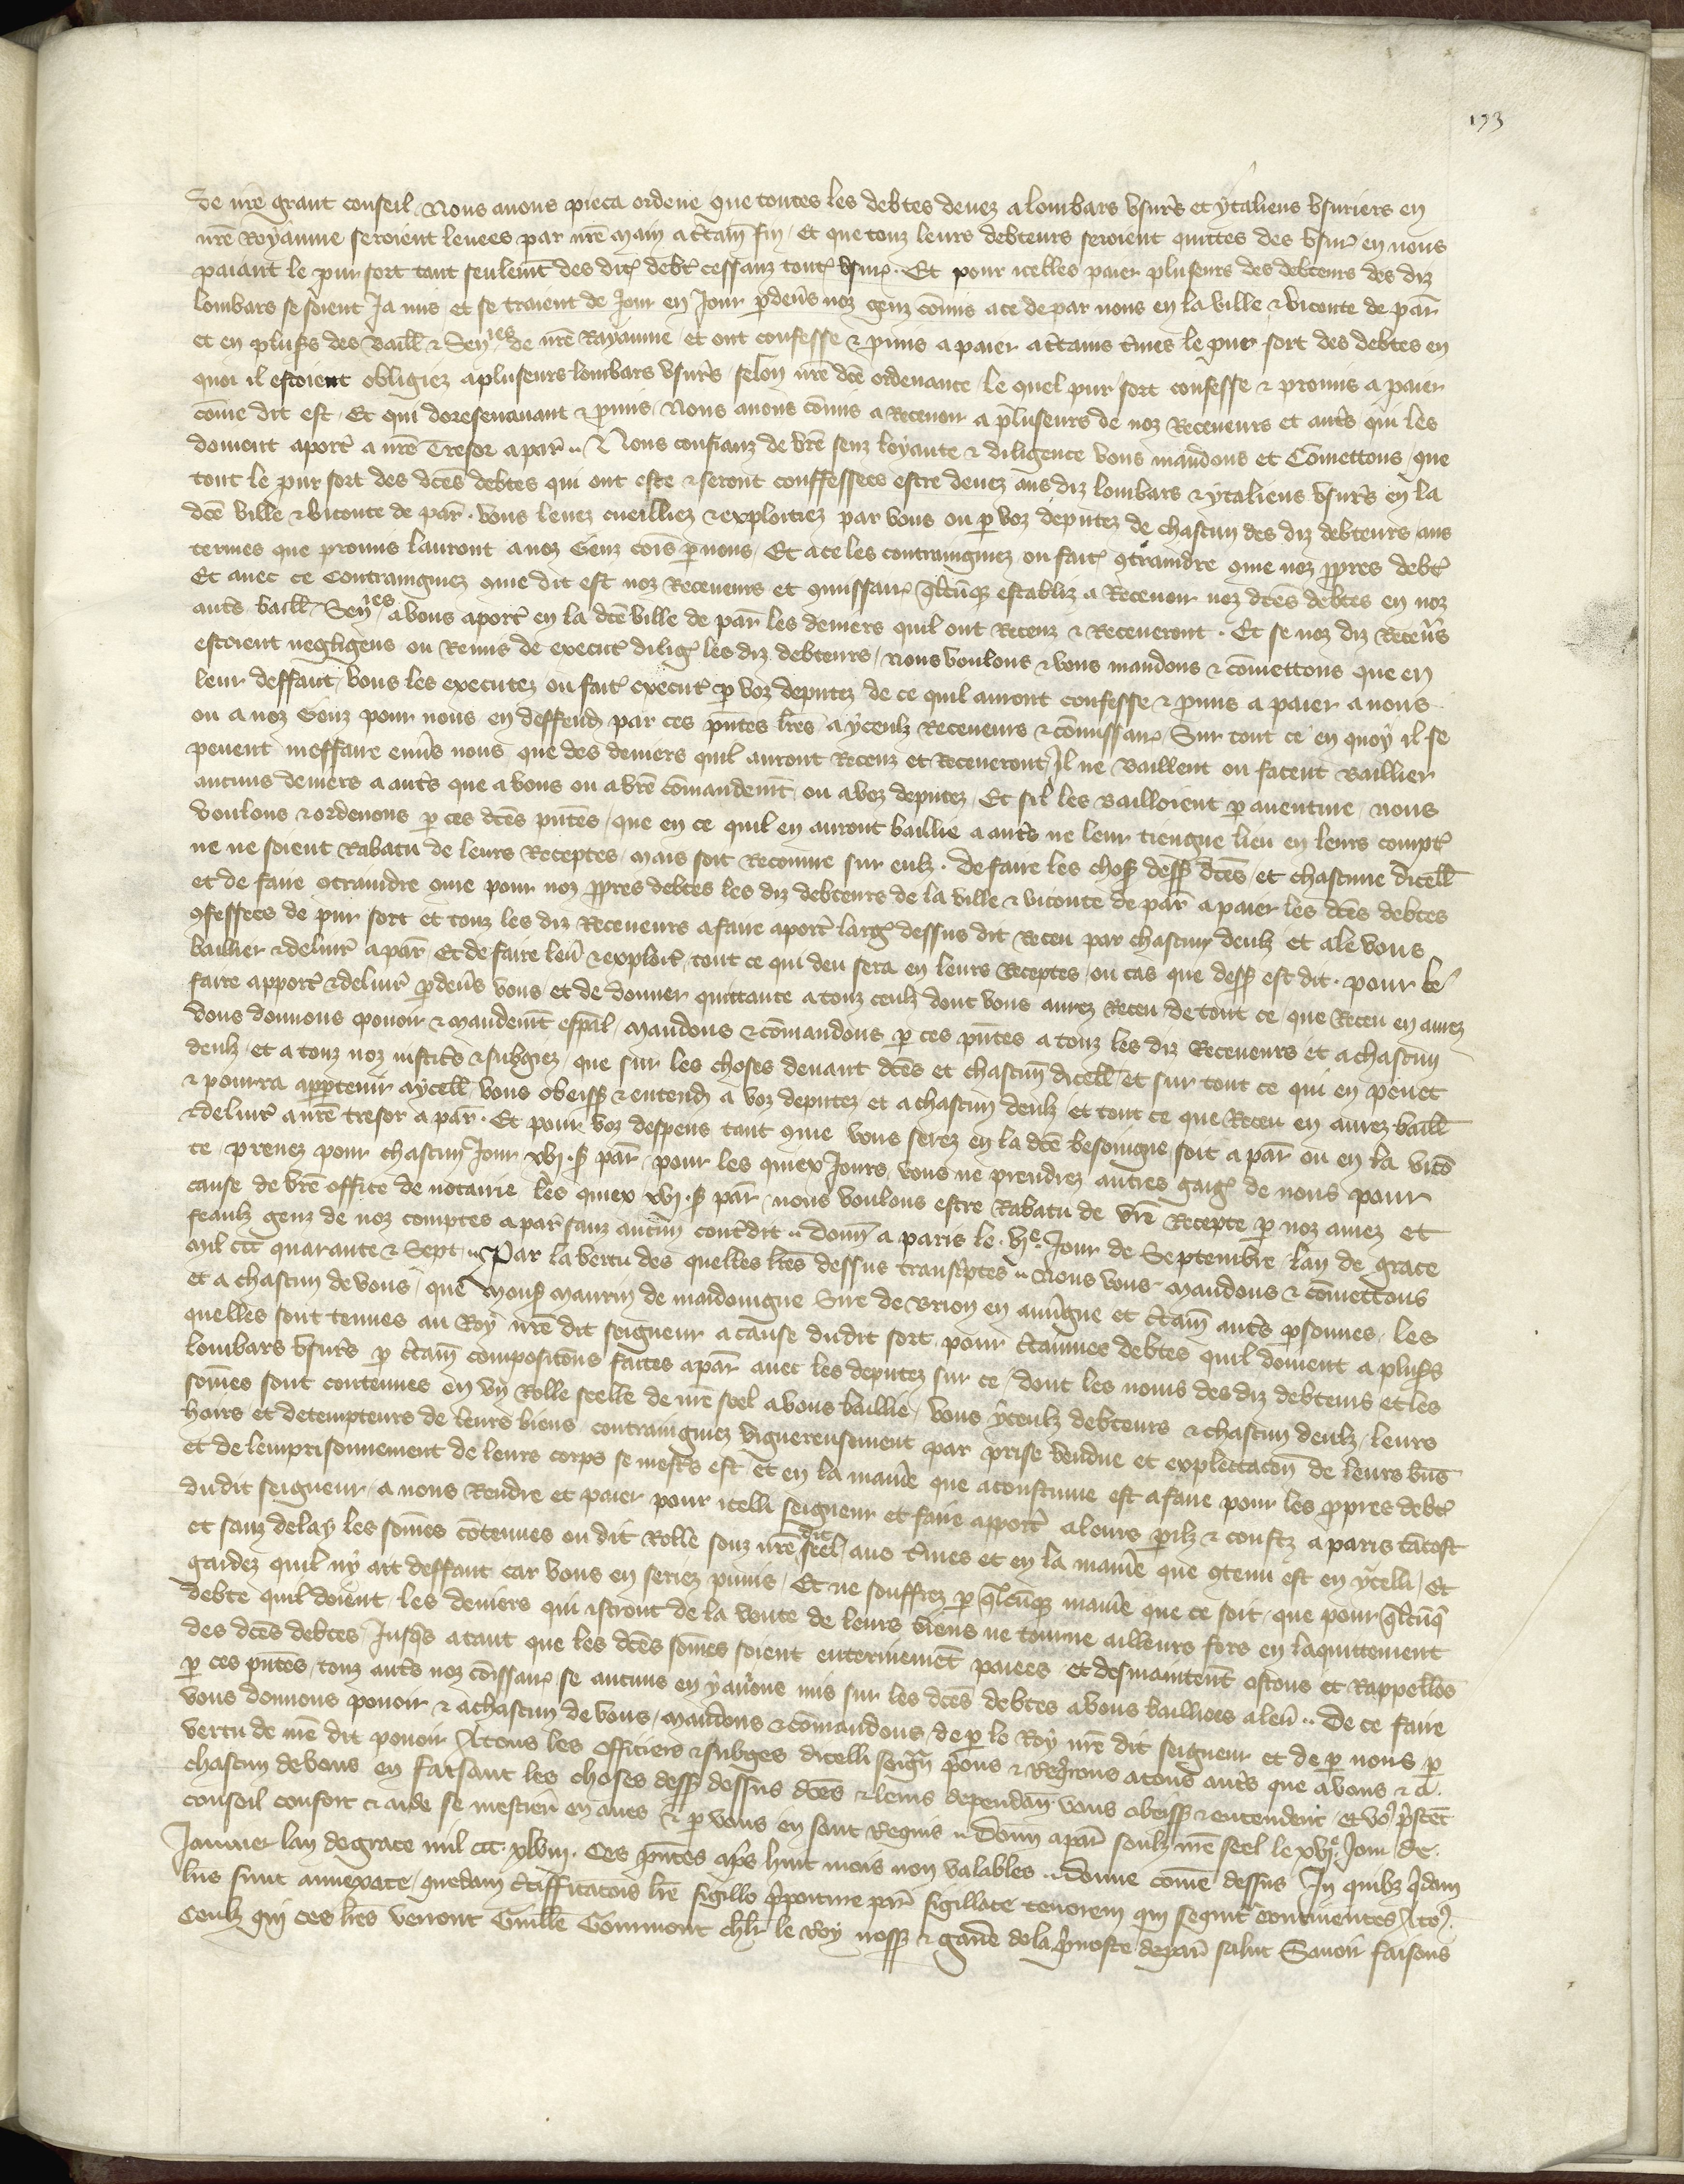 193
de nre grant conseil Nous avons pieca ordene que toutes les debtes deues a lombars usurs et ytaliens usuriers en
nre Royaume seroient levees par nre main a ctain fin / Et que touz leurs debteurs seroient quittes des usur en nous
paiant le pur sort tant seulemt des dit debt cessanz tout usur . Et pour icelles paier pluseurs des debteurs des diz
lombars se soient Ja mis et se traient de Jour en Jour pdevs noz genz comis a ce de par nous en la ville & viconte de par
et en plus des Baill & Senies de nre Royaume et ont confesse & pmis a paier a ctains tmes le pur sort des debtes en
quoi il estoient obligiez a pluseurs lombars usurs / selon nre dce ordenance / le quel pur sort confesse & promis a paier
come dit est / Et qui doresenavant & pmis / Nous avons comis a Recevoir a pluseurs de noz Receveurs et auts qui les
doivent aport a nre Tresor a par .. Nous confianz de vre senz loyaute & diligence vous mandons et Comettons / que
tout le pur sort des dces debtes qui ont este & seront conffessees estre deuez aus diz lombars & ytaliens usurs en la
dce ville & viconte de par . Vous levez cueilliez & exploitiez par vous ou p voz deputez de chascun des diz debteurs aus
termes que promis lauront a noz Genz cois p nous / Et a ce les contraingniez ou fait 9traindre 9me noz ppres debt
Et avec ce Contraingniez 9me dit est noz Receveurs et 9missair qlcuqz establiz a Recevoir noz dces debtes en noz
auts baill Senies a vous aport en la dce ville de par les deniers quil ont Receuz & Receveront . Et se noz diz Recevs
estoient negligens ou Remis de execut dilig les diz debteurs / nous voulons & vous mandons & comettons que en
leur deffaut / vous les executez ou fait execut p voz deputez de ce quil auront confesse & pmis a paier a nous
ou a noz Genz pour nous en deffend par ces pntes lres / a yceulz Receveurs & comissair Sur tout ce en quoy il se
pevent meffaire envs nous que des deniers quil auront Receuz et Receveront Il ne Baillent ou facent Baillier
aucuns deniers a auts que a vous ou a vre comandemt / ou a voz deputez / Et sil les Bailloient p aventure / nous
voulons & ordenons p ces dces pntes / que en ce quil en auront baillie a auts ne leur tiengne lieu en leurs compt
ne ne soient Rabatu de leurs Receptes / mais soit Recouvre sur eulz . De faire les chos dess dces / et chascune dicell
et de faire 9traindre 9me pour noz ppres debtes les diz debteurs de la ville & viconte de par a paier les dces debtes
9fessees de pur sort et touz les diz Receveurs a faire aport larg dessus dit Receu par chascun deulz et a le vous
baillier & delivr a par Et de faire lev & exploit / tout ce qui deu sera en leurs Receptes / ou cas que dess est dit . pour le
faire apport & delivr pdevs vous et de donner quittance a touz ceulz dont vous aurez Receu / de tout ce que Receu en aurez
Vous donnons povoir & mandemt espal / Mandons & comandons p ces pntes a touz les diz Receveurs et a chascun
deulz / et a touz noz justics & subgiez / que sur les choses devant dces et chascun dicell et sur tout ce qui en peuet
& pourra appartenir a ycell / vous obeiss & entend a voz deputez et a chascun deulz / et tout ce que Receu en aurez baill
& delivr a nre tresor a par . Et pour voz despens tant 9me vous serez en la dce besoingne soit a par ou en la vico
te prenez pour chascun Jour xvj . s par / pour les quiex Jours vous ne prendrez autres gaig de nous pour
cause de vre office de notaire les quiex xvj . s par / nous voulons estre Rabatu de vre Recepte p noz amez et
feaulz genz de noz comptes a par sanz aucun contdit .. Donn a paris le . vje . Jour de Septembre / lan de grace
mil ccc quarante & Sept .. Par la vertu des quelles lres dessus transcptes .. Nous vous mandons & comettons
et a chascun de vous / que Mons Maurin de maidoingne Sire de Brion en auvgne et ctain auts psonnes / les
quelles sont tenues au Roy nre dit seigneur a cause dudit sort pour ctainnes debtes quil doivent a plus
lombars usurs p ctain compositons faites a par avec les deputez sur ce / dont les noms des diz debteurs et les
somes sont contenues en un Rolle scelle de nre seel a vous baillie / vous yceulz debteurs & chascun deulz / leurs
hoirs et detempteurs de leurs biens contraingniez viguereusement par prise vendue et explettacon de leurs bns
et de lemprisonnement de leurs corps se mests est Et en la manie que acoustume est a faire pour les ppres debt
dudit seigneur / a nous Rendre et paier pour icelli seigneur et faire apport a leurs pilz & coustz a paris tantost
et sanz delay les somes cotenues ou dit Rolle souz nre dit seel / aus tmes et en la manie que 9tenu est en ycelli / Et
gardez quil ny ait deffaut car vous en seriez punis / Et ne souffrez p qlcuqz manie que ce soit / que pour qlcuq
debte quil doient / les deniers qui istront de la vente de leurs biens ne tourne ailleurs fors en laquittement
des dces debtes / Jusqs a tant que les dces somes soient enterinemt paiees et desmaintent ostons et Rappellons
p ces pntes / touz auts noz coissair se aucuns en y avons mis sur les dces debtes a vous baillies a lev .. De ce faire
vous donnons povoir & a chascun de vous / mandons & comandons / de p le Roy nre dit seigneur et de p nous p
vertu de nre dit povoir A touz les Officiers & subges dicelli seign pons & Reqrons a touz auts que a vous & a
chascun de vous en faisant les choses dess dessus dces & leurs dependan vous obeiss & entendent / Et vo pstent
conseil confort & aide se mestier en aves & p vous en sont Requis .. Donn a par soulz nre seel le xvje . Jour de
Janvier lan de grace mil ccc . xlviii . Ces pntes aps huit mois non valables .. Donne come dessus In quibz qdam
lris sunt annexate / quedam ctifficatois lre sigillo ppoiture par sigillate tenorem qui sequit continentes A to9
Ceulz qui ces lres verront Guille Gormont chlr le Roy noss & garde de la pvoste de par salut Savoir faisons